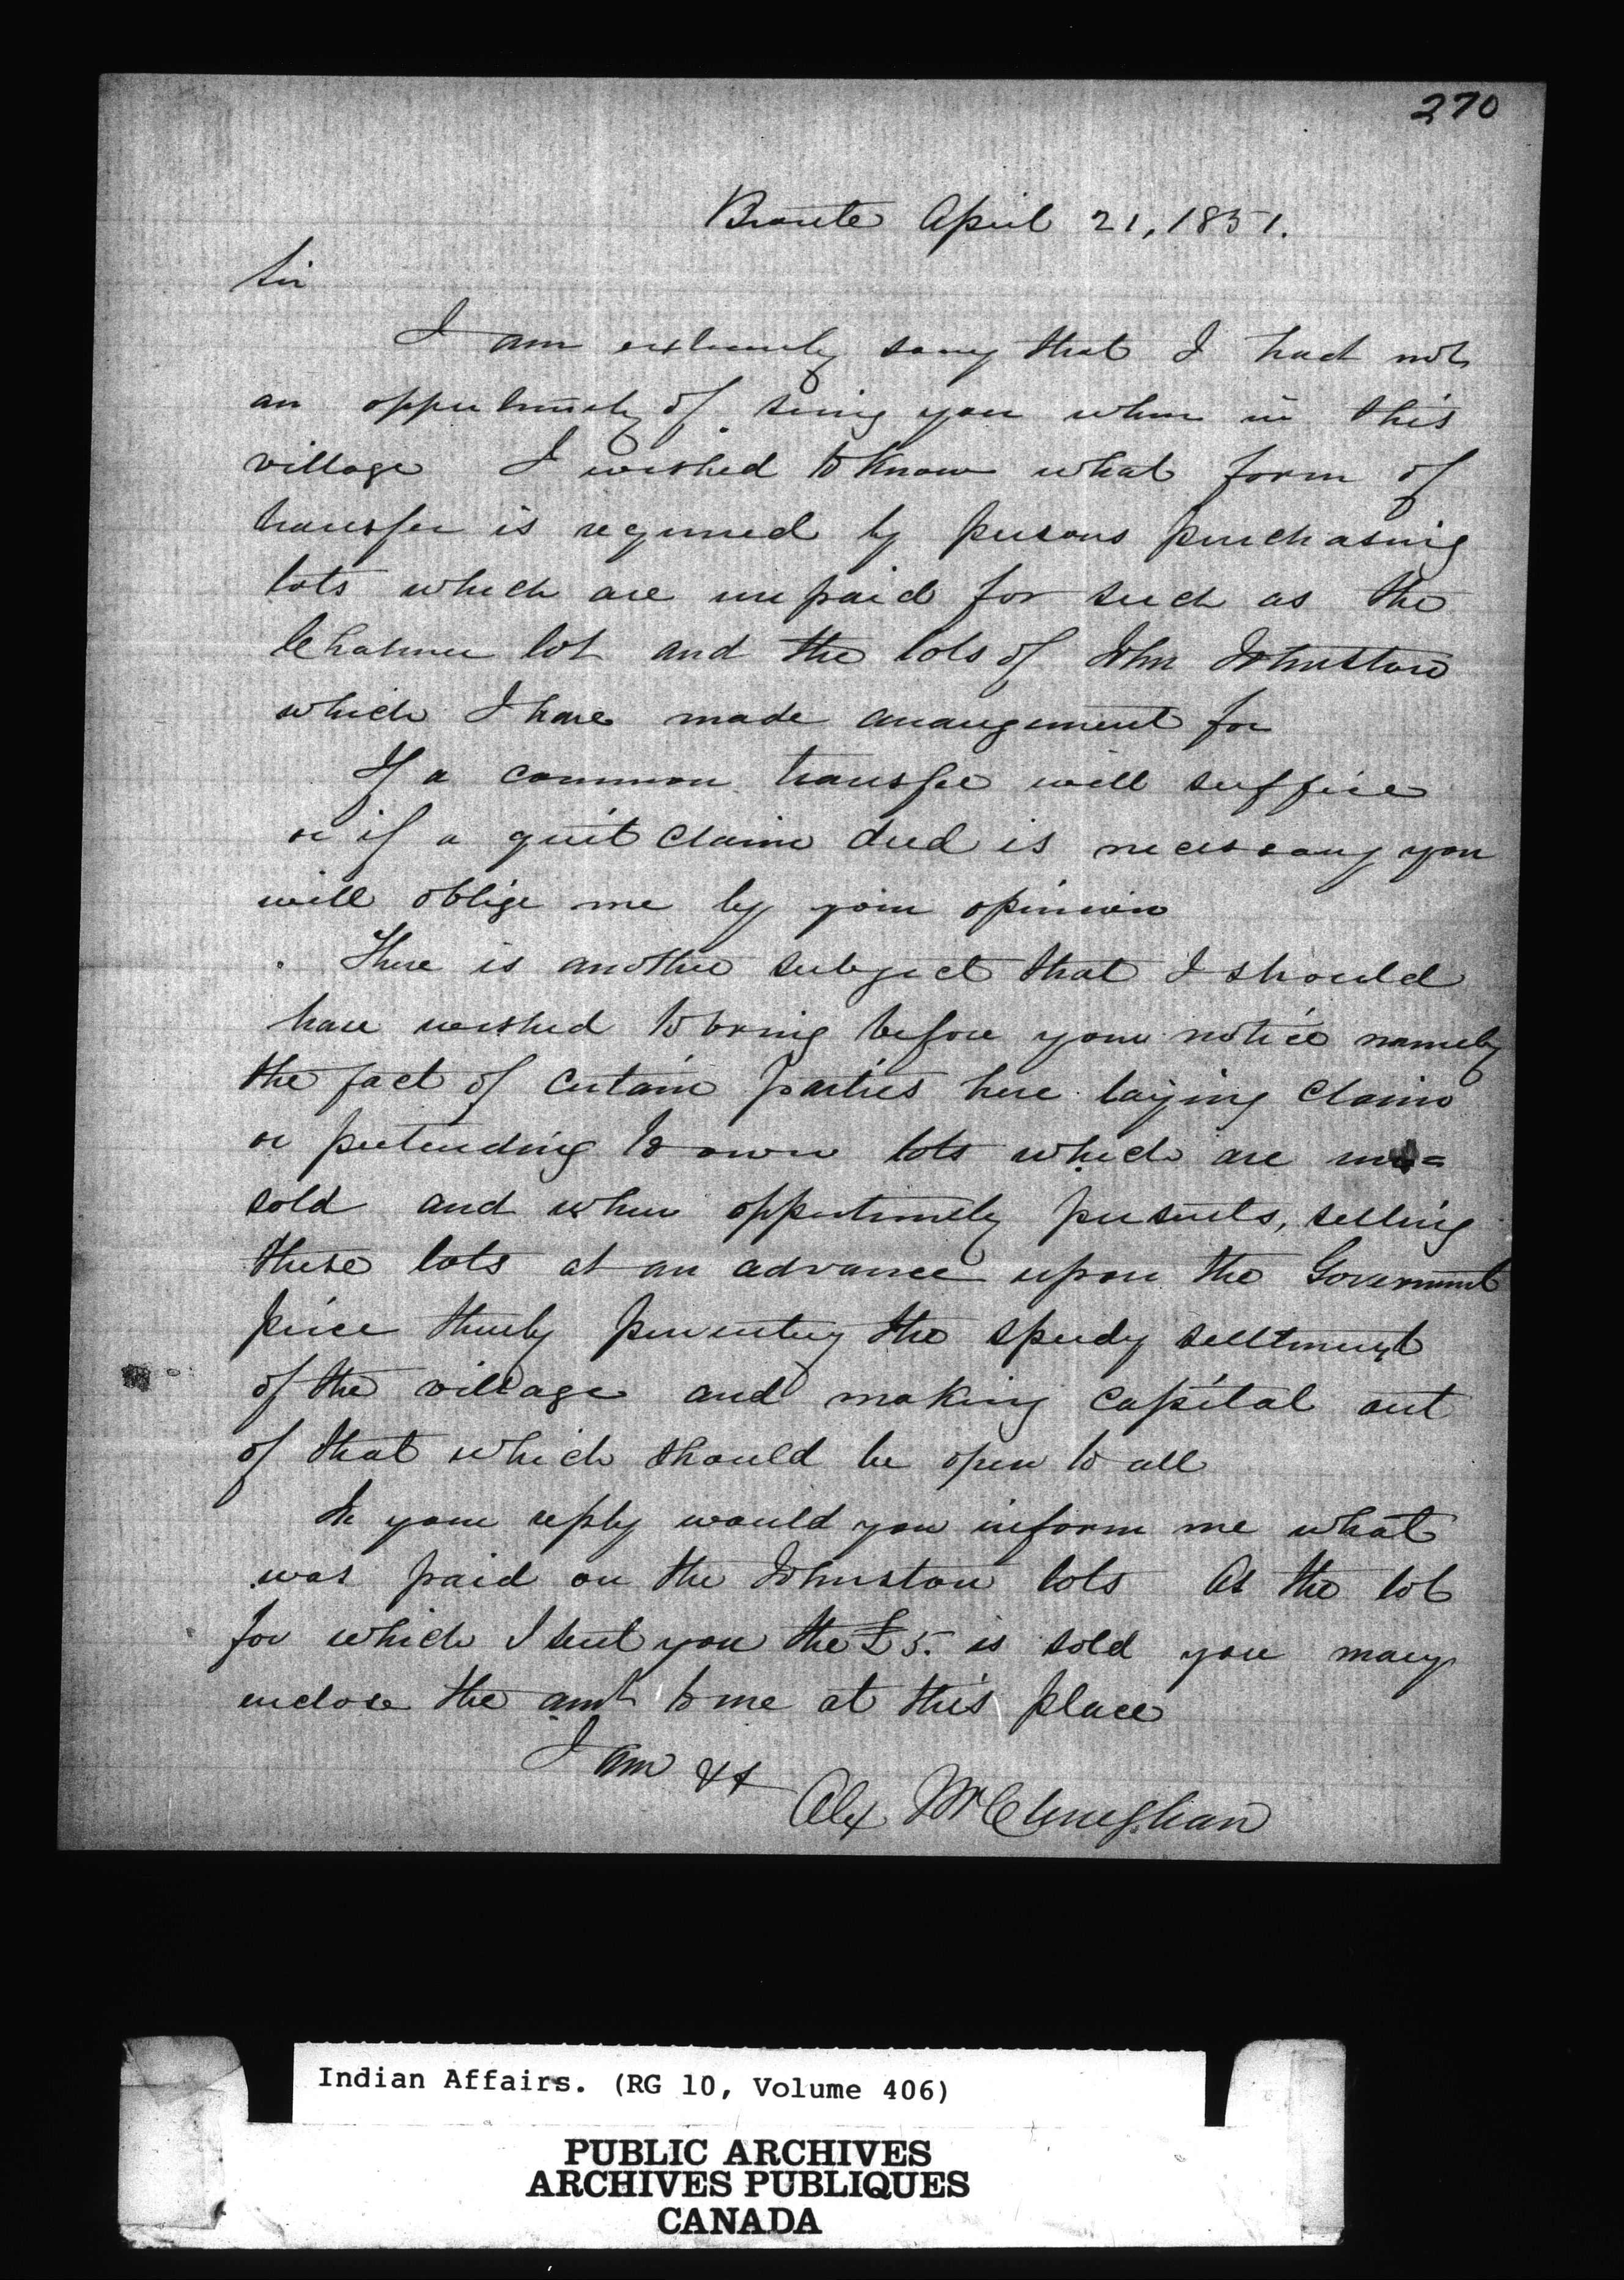 270
Bronte April 21, 1851.
Sir
I am extremely sorry that I had not
an oppertunity of seeing you when in this
village I wished to know what form of
transfer is required by persons purchasing
lots which are unpaid for such as the
lot and the lots of John Johnston
which I have made arrangement for
If a common transfer will suffice
or if a quit claim deed is necessary you
will oblige me by your opinion
There is another subject that I should
have wished to bring before your notice namely
the fact of certain parties here laying claim
or pretending to own lots which are un=
sold and when oppertunity presents, selling
these lots at an advance upon the Government
price thereby preventing the speedy settlement
of the village and making capital out
of that which should be open to all
In your reply would you inform me what
was paid on the Johnston lots As the lot
for which I sent you the £5. is sold you may
enclose the amt to me at this place
I am &c
Alex
Indian Affairs. (RG 10, Volume 406)
PUBLIC ARCHIVES
ARCHIVES PUBLIQUES
CANADA